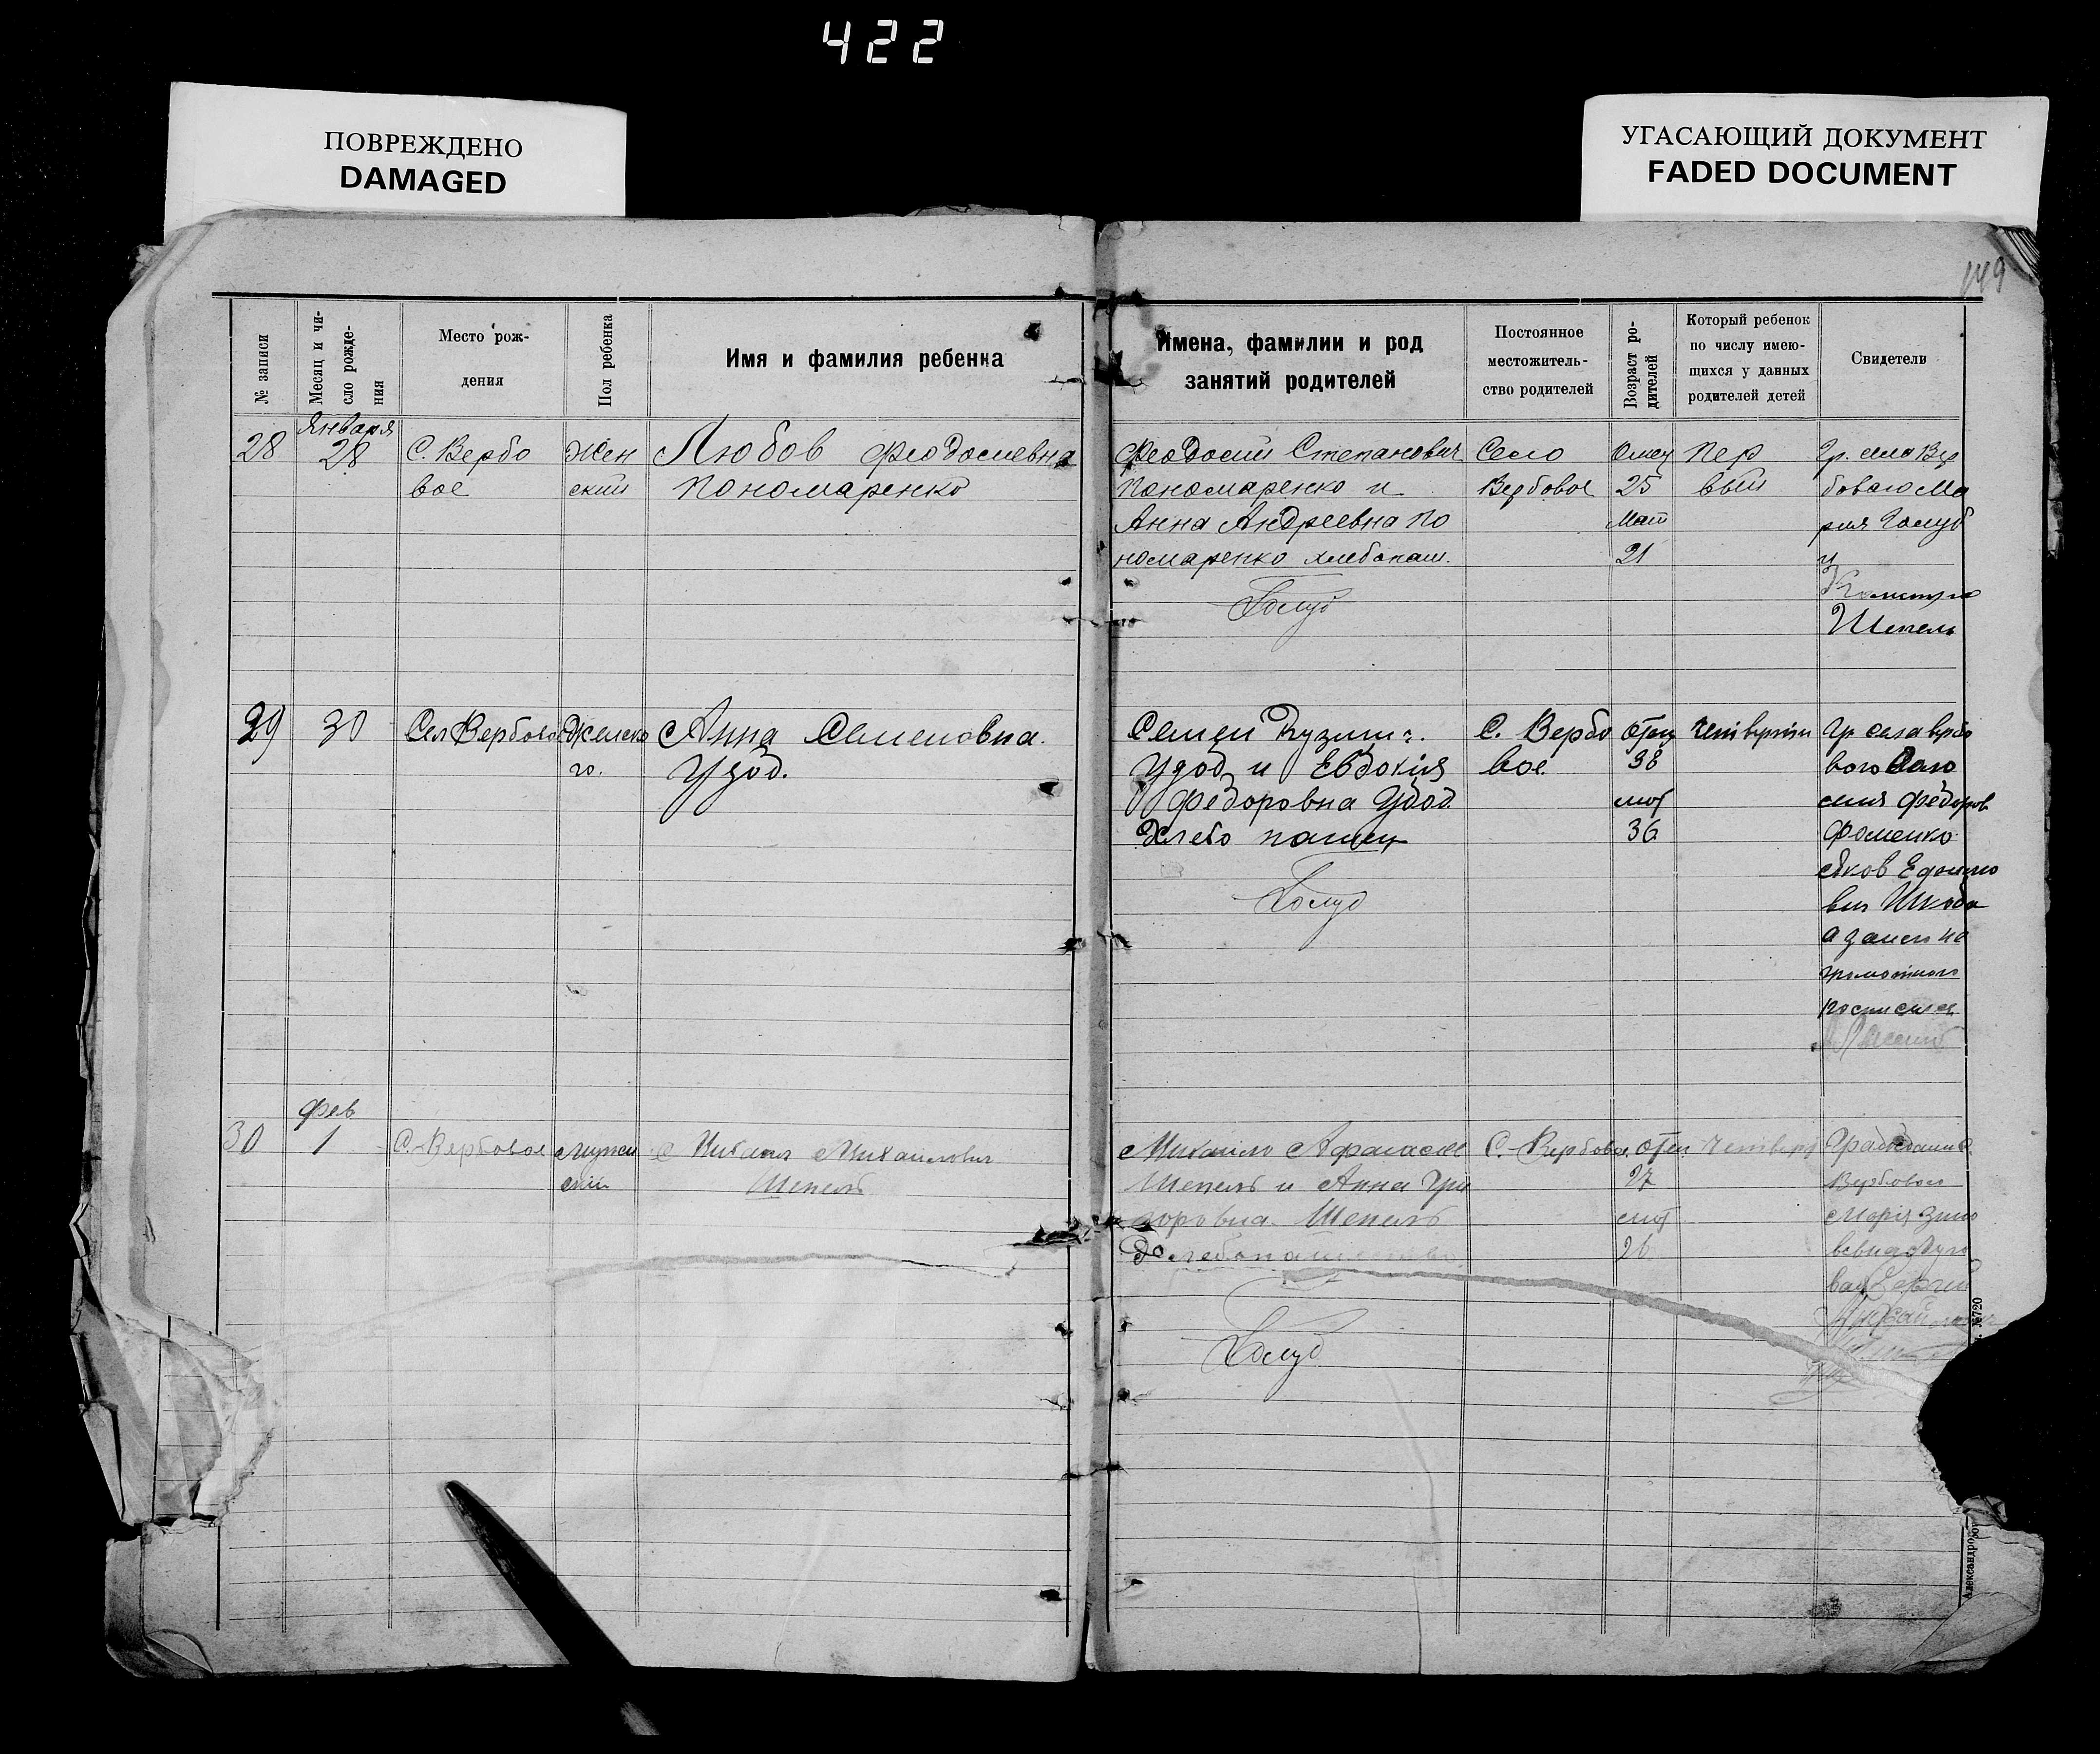 422
ПОВРЕЖДЕНО
DAMAGED
УГАСАЮЩИЙ ДОКУМЕНТ
FADED DOCUMENT
149
№ записи
Месяц и чи-
сло рожде-
ния
Место рож-
дения
Пол ребенка
Имя и фамилия ребенка
Имена, фамилии и род
занятий родителей
Постоянное
местожитель-
ство родителей
Возраст ро-
дителей
Который ребенок
по числу имею-
щихся у данных
родителей детей
Свидетели
28
Января
28
С. Вербо
вое
Жен
ский
Любов Феодосиевна
Пономаренко
Феодосий Степанович
Пономаренко и
Анна Андреевна По
номаренко хлебопаш.
Голуб
Село
Вербовое
Отец
25
Мат
21
Пер
вый
Гр. села Вер
бового Ма
рия Голуб
и
Шепель
29
30
Сел Вербово
Женско
го.
Анна Семеновна.
Удод.
Семен Кузмич.
Удод и Евдокія
Федоровна Удод
Хлебо пашец
Голуб
С. Вербо
вое.
Отец
38
мат
36
четвертий
Гр села вербо
вого
Федоров
Фоменко
Яков
вич Шкода
а за него не
грамотного
росписался
30
Фев
1
С. Вербовое
мужс
кий
Михаил Михаилович
Шепель
Михаил Афанасие
Шепель и Анна Гри
горовна Шепель
Хлебопашество
Голуб
С. Вербовое
отец
27
мат
26
четверт
Граждани С.
Вербового
Марія Зино
вевна
№720
Александров